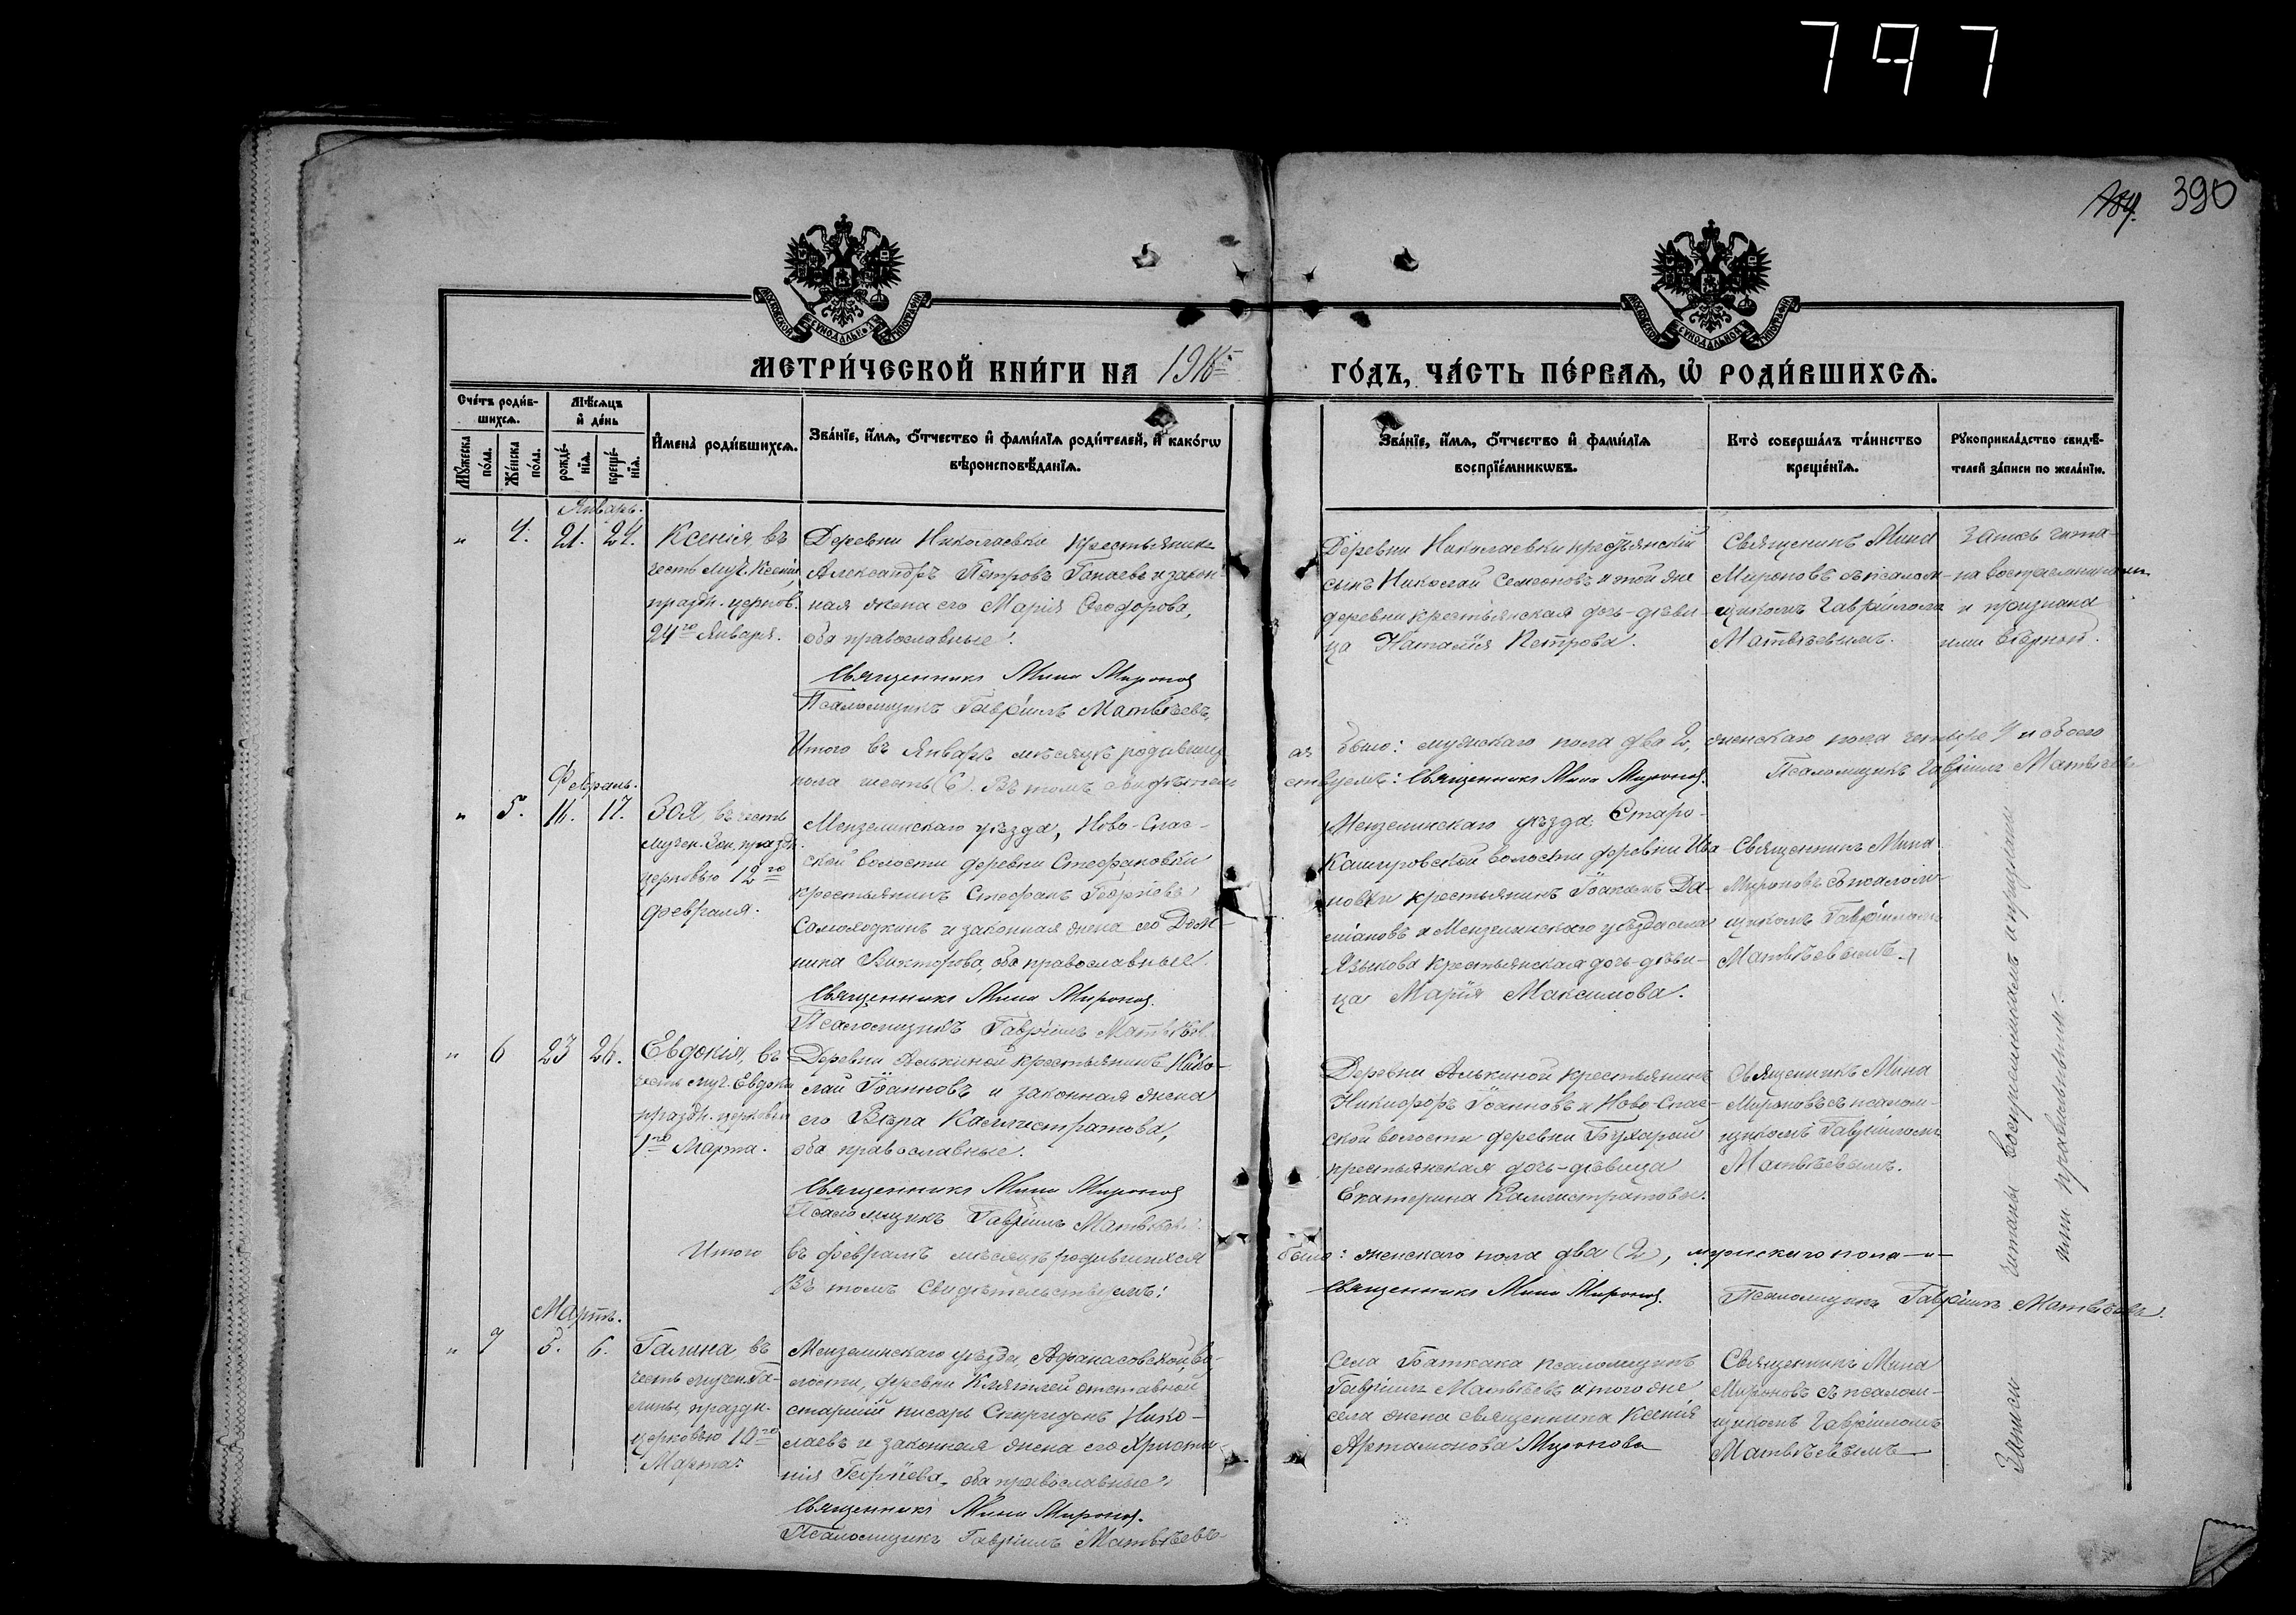 797
390
МОСКОВСКОЙ СѴНОДАЛЬНОЙ ТИПОГРАФІИ
МОСКОВСКОЙ СѴНОДАЛЬНОЙ ТИПОГРАФІИ
МЕТРИ́ЧЕСКОЙ КНИ́ГИ НА 1916 ГО́ДЪ, ЧА́СТЬ ПЕ́РВАЯ, Ѿ РОДИ́ВШИХСЯ.
Сче́тъ роди́в-
шихся.
Мѣ́сяцъ
и҆ де́нь
Мꙋ́жеска
по́ла.
Же́нска
по́ла.
рожде́-
нїя.
креще́-
нїя.
И҆мена̀ роди́вшихся.
Зва́нїе, и҆́мя, ѻ҆́тчество и҆ фами́лїя роди́телей, и҆ како́гѡ
вѣроисповѣ́данїя.
Зва́нїе, и҆́мя, ѻ҆́тчество и҆ фами́лїя
воспрїе́мникѡвъ.
Кто̀ соверша́лъ та́инство
креще́нїя.
Рꙋкоприкла́дство свидѣ́-
телей за́писи по жела́нїю.
Январь.
„ 4. 21. 24.
Ксенія, въ
честь муч. Ксеніи,
праздн. церков.
24го Января.
Деревни Николаевки крестьянинъ
Александръ Петровъ Ганаевъ и закон-
ная жена его Марія Ѳеодорова,
оба православные.
Священникъ Мина Мироновъ
Псаломщикъ Гавріилъ Матвѣевъ.
Деревни Николаевки крестьянскій
сынъ Николай Семеоновъ и той же
деревни крестьянская дочь-дѣви-
ца Наталія Петрова.
Священникъ Мина
Мироновъ съ псалом-
щикомъ Гавріиломъ
Матвѣевымъ.
Запись чита-
на воспріемниками
и признана
ими вѣрной.
Итого въ Январѣ мѣсяцѣ родивших
ся было: мужскаго пола два 2, женскаго пола четыре 4 и обоего
пола шесть (6). Въ томъ свидѣтель
ствуемъ: Священникъ Мина Мироновъ.
Псаломщикъ Гавріилъ Матвѣевъ
Февраль.
„ 5. 16. 17.
Зоя, въ честь
мучен. Зои, праздн.
церковью 12го
февраля.
Мензелинскаго уѣзда, Ново-Спас-
ской волости деревни Стефановки
крестьянинъ Стефанъ Георгіевъ
Самолодкинъ и законная жена его Дом-
ника Викторова, оба православные.
Священникъ Мина Мироновъ.
Псаломщикъ Гавріилъ Матвѣев.
Мензелинскаго уѣзда Старо-
Кашировской волости деревни Ива-
новки крестьянинъ Іоакимъ Да-
міановъ и Мензелинскаго уѣзда села
Языкова крестьянская дочь-дѣви-
ца Марія Максимова.
Священникъ Мина
Мироновъ съ псалом-
щикомъ Гавріиломъ
Матвѣевымъ.
„ 6 23 26.
Евдокія, въ
честь муч. Евдокіи
праздн. церковью
1го Марта.
Деревни Алькиной крестьянинъ Нико-
лай Іоанновъ и законная жена
его Вѣра Каллистратова,
оба православные.
Священникъ Мина Мироновъ
Псаломщикъ Гавріилъ Матвѣевъ.
Деревни Алькиной крестьянинъ
Никифоръ Іоанновъ и Ново-Спас-
ской волости деревни Бухарай
крестьянская дочь-дѣвица
Екатерина Каллистратова.
Священникъ Мина
Мироновъ съ псалом-
щикомъ Гавріиломъ
Матвѣевымъ.
Итого въ февралѣ мѣсяцѣ родившихся
было: женскаго пола два (2), мужскаго пола —„—
Въ томъ свидѣтельствуемъ:
Священникъ Мина Мироновъ.
Псаломщикъ Гавріилъ Матвѣевъ.
Мартъ.
„ 7 5. 6.
Галина въ
честь мучен. Га-
лины, праздн.
церковью 10го
Марта.
Мензелинскаго уѣзда, Афанасовской во-
лости, деревни Клятлей отставной
старшій писарь Спиридонъ Нико-
лаевъ и законная жена его Христи-
нія Георгіева, оба православные.
Священникъ Мина Мироновъ.
Псаломщикъ Гавріилъ Матвѣевъ
Села Баткака псаломщикъ
Гавріилъ Матвѣевъ и того же
села жена священника Ксенія
Артамонова Миронова
Священникъ Мина
Мироновъ съ псалом-
щикомъ Гавріиломъ
Матвѣевымъ
Записи читаны воспріемникамъ и признаны
ими правильными.